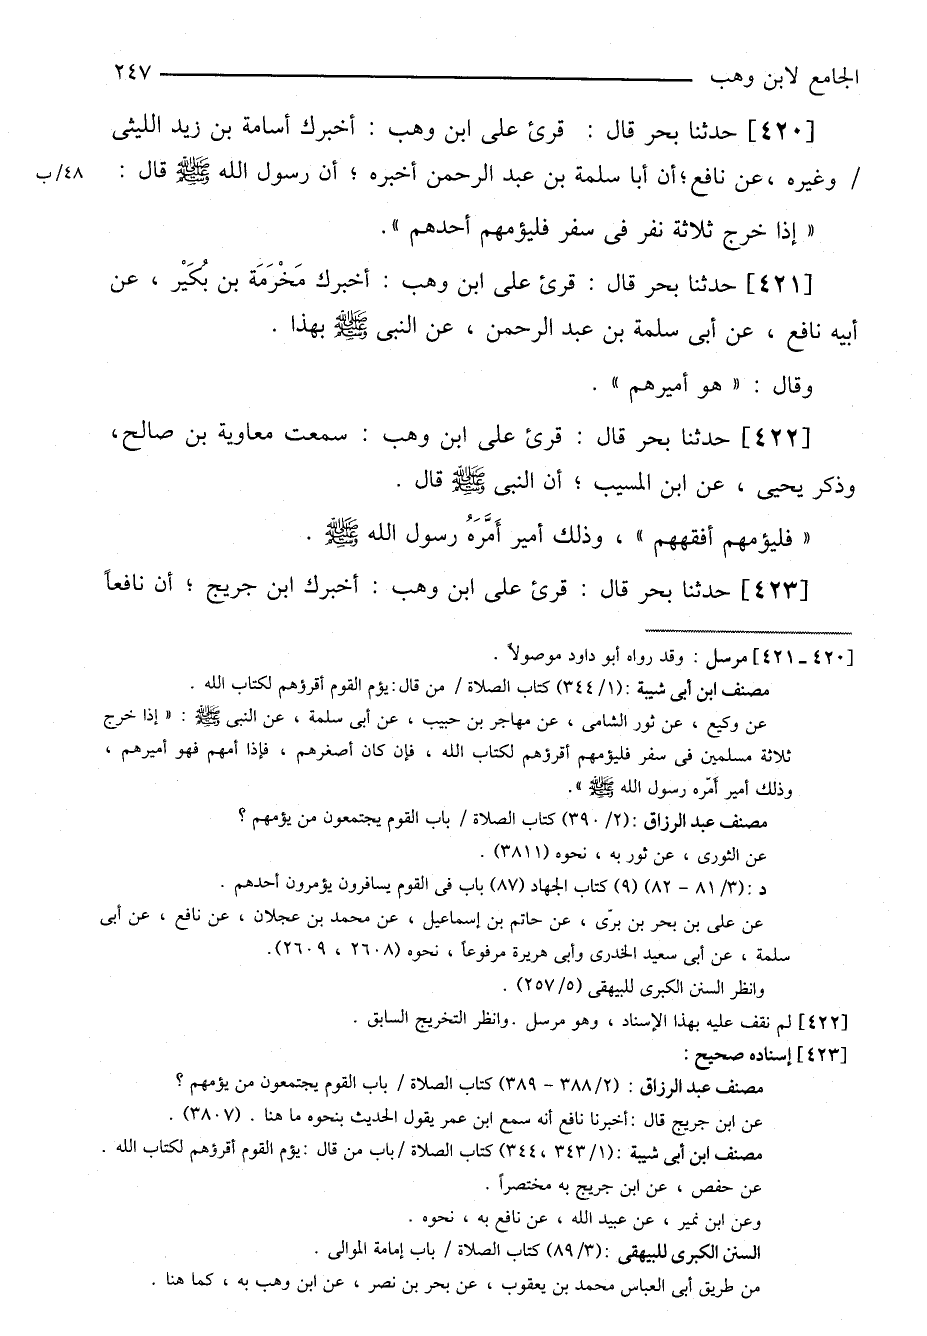 الجامع لابن وهب ٢٤٧
[٤٢٠] حدثنا بحر قال : قرئ على ابن وهب : أخبرك أسامة بن زيد الليثى
/ وغيره ، عن نافع ؛ أن أبا سلمة بن عبد الرحمن أخبره ؛ أن رسول الله ﷺ قال : ٤٨/ب
« إذا خرج ثلاثة نفر فى سفر فليؤمهم أحدهم » .
[٤٢١] حدثنا بحر قال : قرئ على ابن وهب : أخبرك مَخْرَمَة بن بُكَيْر ، عن
أبيه نافع ، عن أبى سلمة بن عبد الرحمن ، عن النبى ﷺ بهذا .
وقال : « هو أميرهم » .
[٤٢٢] حدثنا بحر قال : قرئ على ابن وهب : سمعت معاوية بن صالح ،
وذكر يحيى ، عن ابن المسيب ؛ أن النبى ﷺ قال .
« فليؤمهم أفقههم » ، وذلك أمير أَمَّرَهُ رسول الله ﷺ .
[٤٢٣] حدثنا بحر قال : قرئ على ابن وهب : أخبرك ابن جريج ؛ أن نافعاً
[٤٢٠ ـ ٤٢١] مرسل : وقد رواه أبو داود موصولاً .
مصنف ابن أبى شيبة : (١/ ٣٤٤) كتاب الصلاة / من قال : يؤم القوم أقرؤهم لكتاب الله .
عن وكيع ، عن ثور الشامى ، عن مهاجر بن حبيب ، عن أبى سلمة ، عن النبى ﷺ : « إذا خرج
ثلاثة مسلمين فى سفر فليؤمهم أقرؤهم لكتاب الله ، فإن كان أصغرهم ، فإذا أمهم فهو أميرهم ،
وذلك أمير أمّره رسول الله ﷺ » .
مصنف عبد الرزاق : (٢/ ٣٩٠) كتاب الصلاة / باب القوم يجتمعون من يؤمهم ؟
عن الثورى ، عن ثور به ، نحوه (٣٨١١) .
د : (٣/ ٨١ - ٨٢) (٩) كتاب الجهاد (٨٧) باب فى القوم يسافرون يؤمرون أحدهم .
عن على بن بحر بن برّى ، عن حاتم بن إسماعيل ، عن محمد بن عجلان ، عن نافع ، عن أبى
سلمة ، عن أبى سعيد الخدرى وأبى هريرة مرفوعاً ، نحوه (٢٦٠٨ ، ٢٦٠٩) .
وانظر السنن الكبرى للبيهقى (٥/ ٢٥٧) .
[٤٢٢] لم نقف عليه بهذا الإسناد ، وهو مرسل . وانظر التخريج السابق .
[٤٢٣] إسناده صحيح :
مصنف عبد الرزاق : (٢/ ٣٨٨ - ٣٨٩) كتاب الصلاة / باب القوم يجتمعون من يؤمهم ؟
عن ابن جريج قال : أخبرنا نافع أنه سمع ابن عمر يقول الحديث بنحوه ما هنا . (٣٨٠٧) .
مصنف ابن أبى شيبة : (١/ ٣٤٣ ، ٣٤٤) كتاب الصلاة / باب من قال : يؤم القوم أقرؤهم لكتاب الله .
عن حفص ، عن ابن جريج به مختصراً .
وعن ابن نمير ، عن عبيد الله ، عن نافع به ، نحوه .
السنن الكبرى للبيهقى : (٣/ ٨٩) كتاب الصلاة / باب إمامة الموالى .
من طريق أبى العباس محمد بن يعقوب ، عن بحر بن نصر ، عن ابن وهب به ، كما هنا .